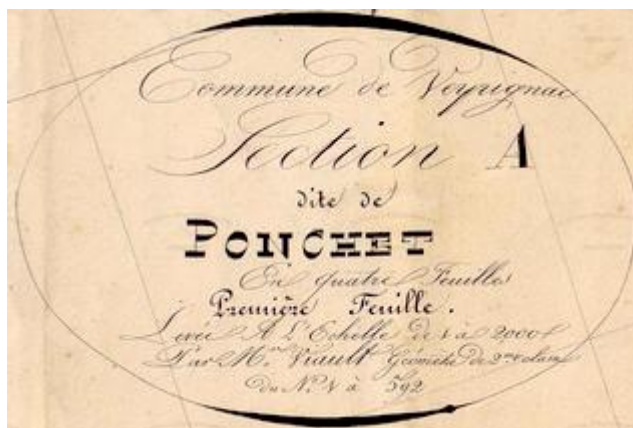 Commune de Veyrignac
Section A
dite de
PONCHET
En quatre Feuilles
Première Feuille.
Levée A L'Echelle de 1 à 2000
Par Mr. Viault Géomètre de 2me classe
Du N.º 1 à 592